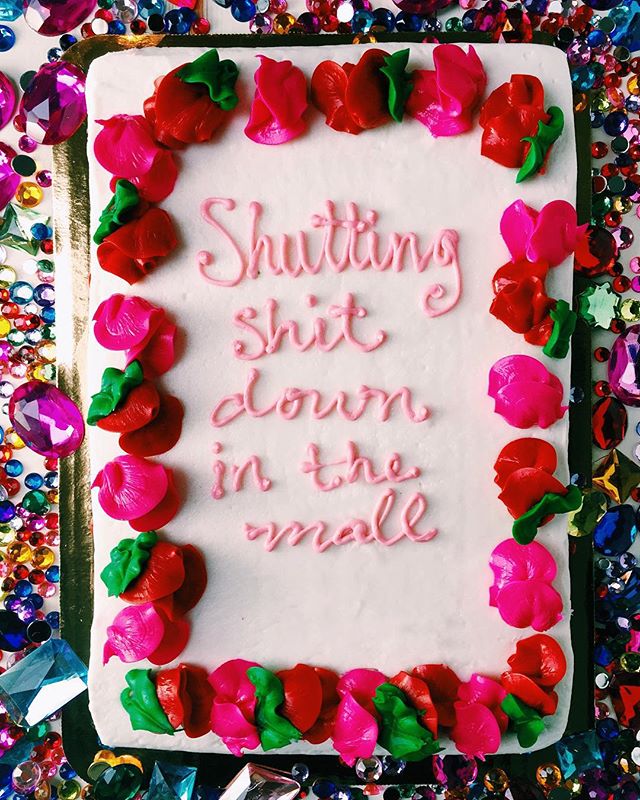 Shutting
shit
down
in the
mall